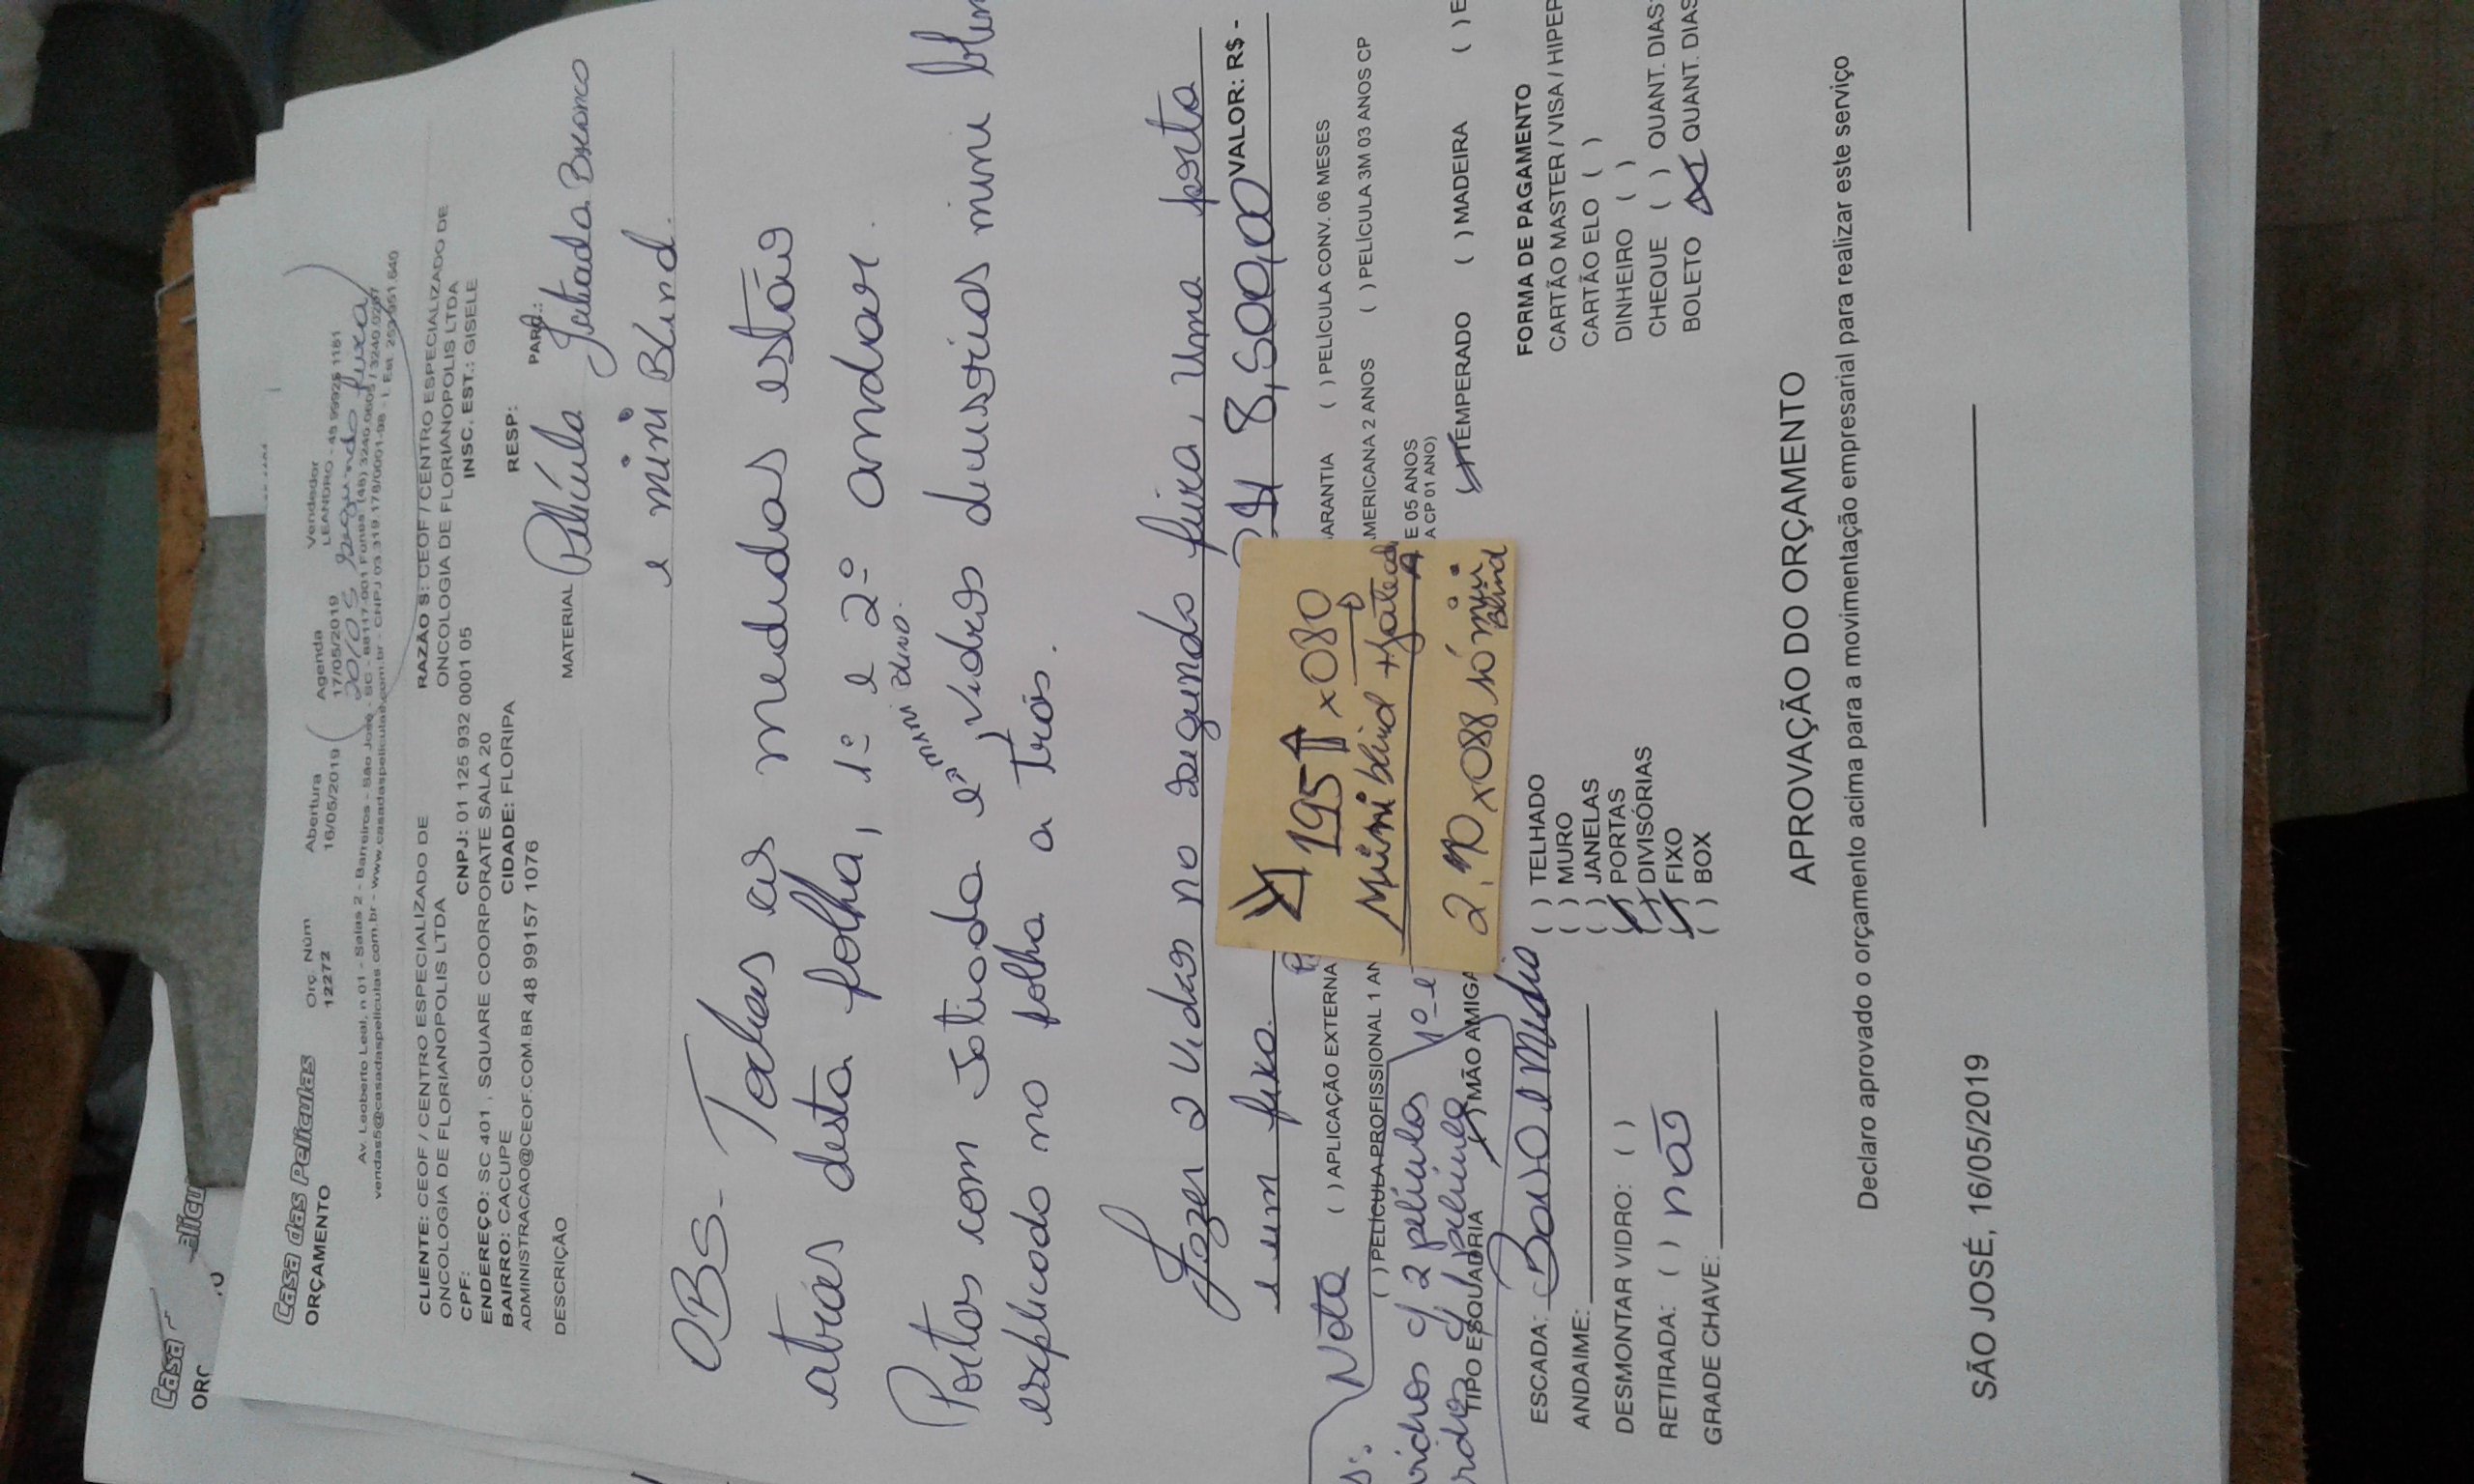 Casa das Películas
ORÇAMENTO
Orç. Núm
12272
Abertura
16/05/2019
Agenda
17/05/2019
Vendedor
LEANDRO - 48 99926 1181
20/05 segunda feira
Av. Leoberto Leal, n 01 - Salas 2 - Barreiros - São José - SC - 88117-001 Fones: (48) 3240.0605 / 3240.0207
vendas5@casadaspeliculas.com.br - www.casadaspeliculas.com.br - CNPJ 03.319.178/0001-98 - I. Est. 253.951.640
CLIENTE: CEOF / CENTRO ESPECIALIZADO DE
ONCOLOGIA DE FLORIANOPOLIS LTDA
RAZÃO S: CEOF / CENTRO ESPECIALIZADO DE
ONCOLOGIA DE FLORIANOPOLIS LTDA
CPF:
CNPJ: 01 125 932 0001 05
INSC. EST.: GISELE
ENDEREÇO: SC 401 , SQUARE COORPORATE SALA 20
BAIRRO: CACUPE
CIDADE: FLORIPA
RESP:
ADMINISTRACAO@CEOF.COM.BR 48 99157 1076
DESCRIÇÃO
MATERIAL
Película Jatiada Branco
e mini Blind.
OBS- Todas as medidas estão
atrás desta folha, 1º e 2º andar.
MINI BLIND.
Portas com Jatiada e vidros deusorios mini
explicado na folha a trás.
Fazer 2 vidros na segunda feira, uma porta
e um fixo.
8,500,00
VALOR: R$ -
195 x 080
Mini blind + Jatead
2,10 x 088 só mini
Blind
Nota
( ) APLICAÇÃO EXTERNA
ARANTIA
( ) PELÍCULA CONV. 06 MESES
( ) PELÍCULA PROFISSIONAL 1 AN
MERICANA 2 ANOS
( ) PELÍCULA 3M 03 ANOS CP
vidros c/ 2 películas
E 05 ANOS
A CP 01 ANO)
c/ película
TIPO ESQUADRIA
MÃO AMIGA
TEMPERADO
( ) MADEIRA
( ) E
ESCADA: Baixo e Médio
ANDAIME:
DESMONTAR VIDRO: ( )
RETIRADA: ( ) não
GRADE CHAVE:
( ) TELHADO
( ) MURO
( ) JANELAS
PORTAS
DIVISÓRIAS
FIXO
( ) BOX
FORMA DE PAGAMENTO
CARTÃO MASTER / VISA / HIPER
CARTÃO ELO ( )
DINHEIRO ( )
CHEQUE ( ) QUANT. DIAS
BOLETO QUANT. DIAS
APROVAÇÃO DO ORÇAMENTO
Declaro aprovado o orçamento acima para a movimentação empresarial para realizar este serviço
SÃO JOSÉ, 16/05/2019
Casa
ORÇ